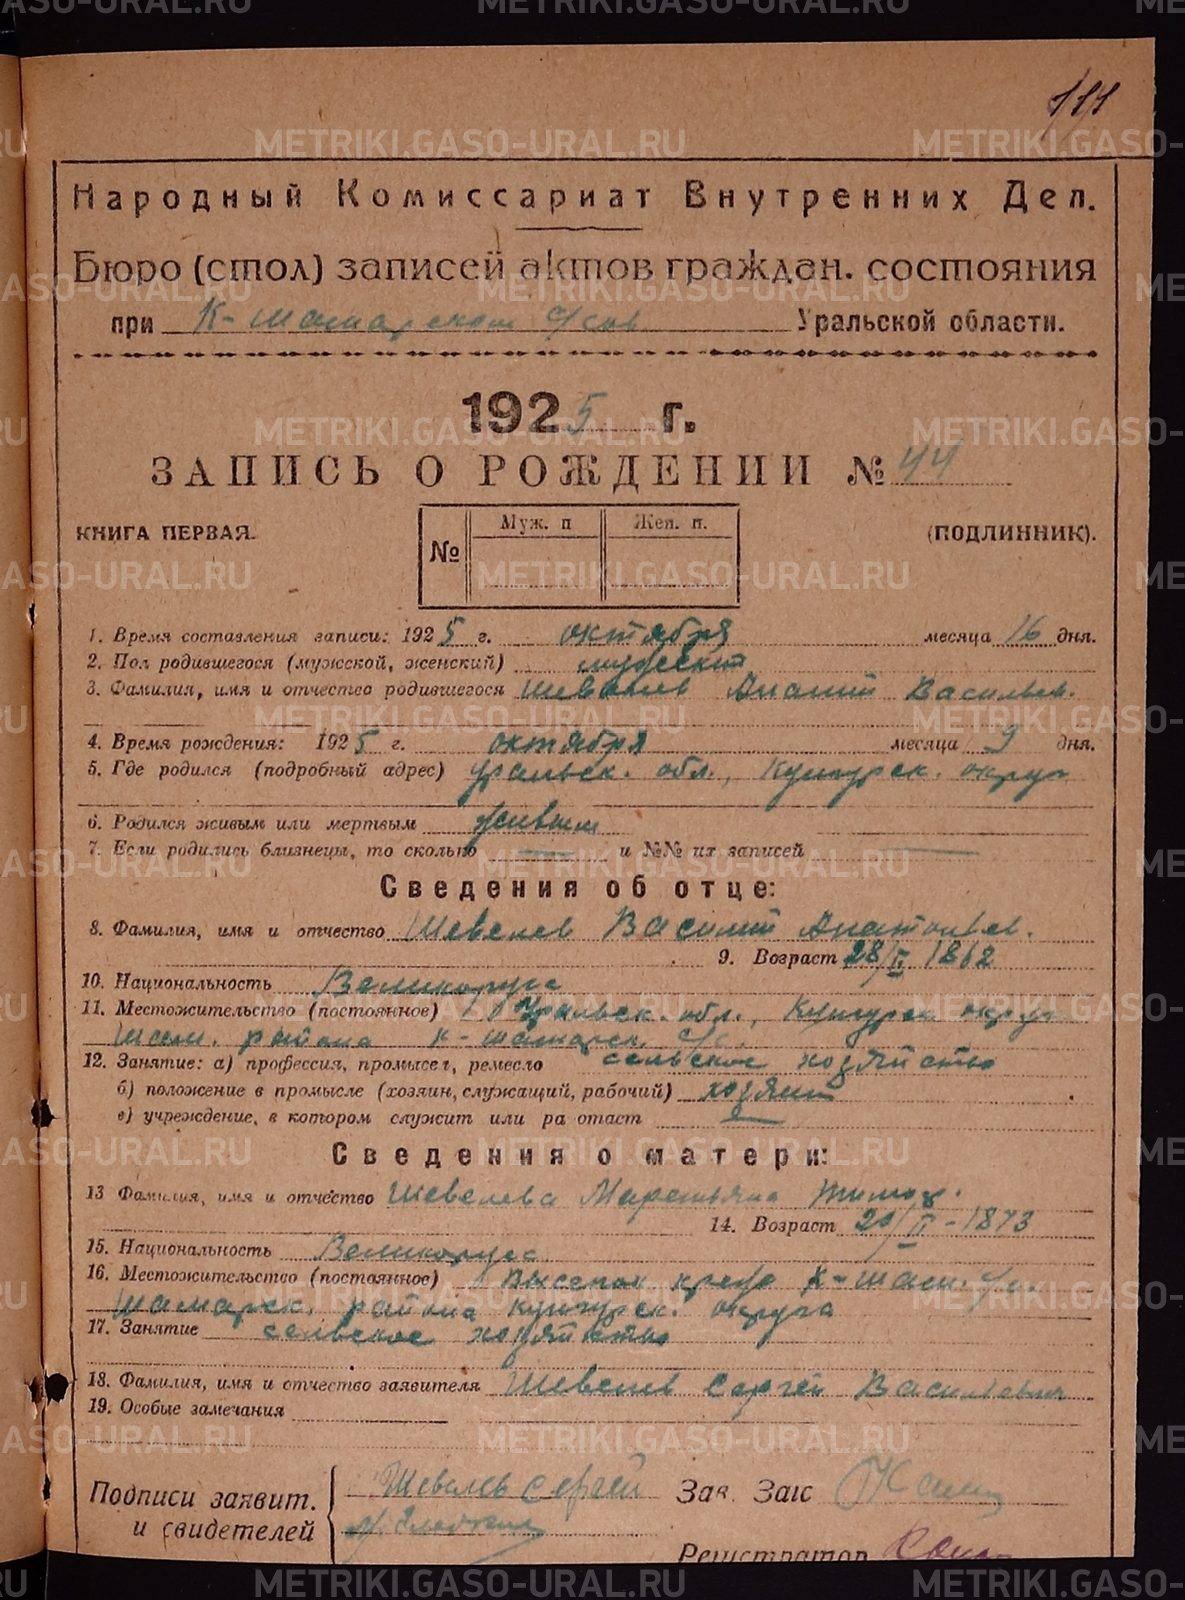 111
Народный Комиссариат Внутренних Дел.
Бюро (стол) записей актов граждан. состояния
при К-Шамарском с/сов Уральской области.
1925 г.
ЗАПИСЬ О РОЖДЕНИИ № 44
КНИГА ПЕРВАЯ.
№ Муж. п Жен. п.
(ПОДЛИННИК).
1. Время составления записи: 1925 г. октября месяца 16 дня.
2. Пол родившегося (мужской, женский) мужской
3. Фамилия, имя и отчество родившегося Шевелев Васильев.
4. Время рождения: 1925 г. октября месяца 9 дня.
5. Где родился (подробный адрес) Уральск. обл., Кунгурск. округ
6. Родился живым или мертвым живым
7. Если родились близнецы, то сколько — и №№ их записей —
Сведения об отце:
8. Фамилия, имя и отчество Шевелев Василий
9. Возраст 28/II 1862
10. Национальность Великорус
11. Местожительство (постоянное) Уральск. обл., Кунгурск округ
Шам. района К-Шамарск. с/с.
12. Занятие: а) профессия, промысел, ремесло сельское хозяйство
б) положение в промысле (хозяин, служащий, рабочий) хозяин
в) учреждение, в котором служит или ра отаст —
Сведения о матери:
13 Фамилия, имя и отчество Шевелева Маремьяна Тимоф.
14. Возраст 20/II-1873
15. Национальность Великорус
16. Местожительство (постоянное) Выселок К-Шам. с/с.
Шамарск. района Кунгурск. округа
17. Занятие сельское хозяйство
18. Фамилия, имя и отчество заявителя Шевелев Сергей Васильевич
19. Особые замечания
Подписи заявит. и свидетелей
Шевелев Сергей
Зав. Загс
Регистратор
METRIKI.GASO-URAL.RU